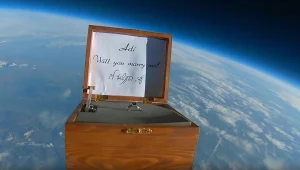 Adi
Will you marry me?